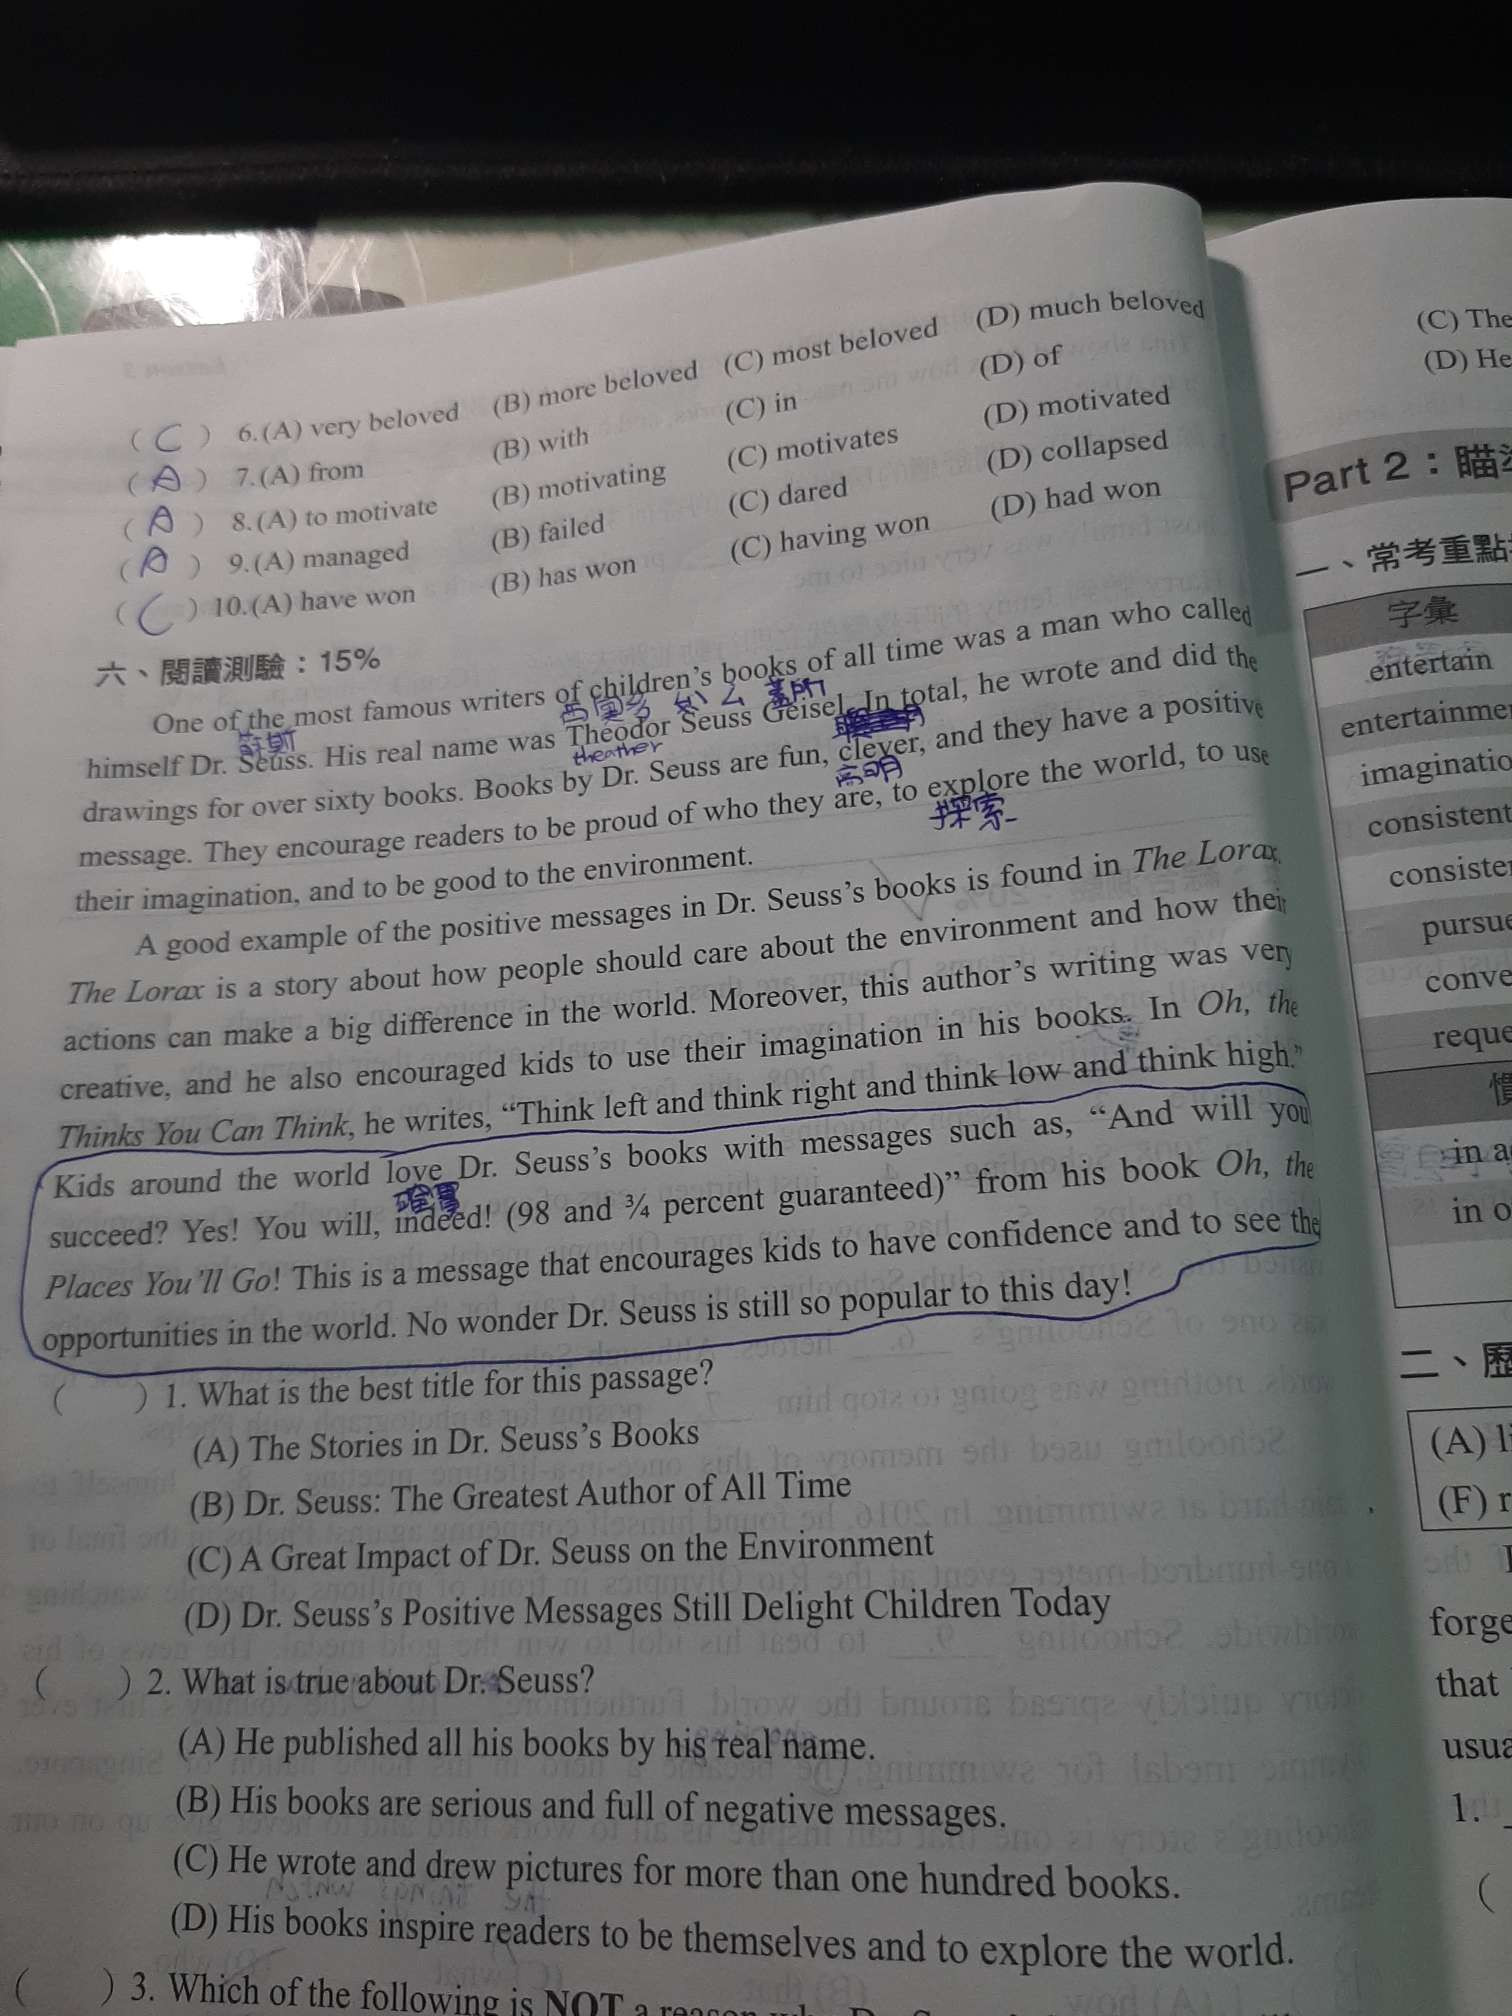 ( C ) 6.(A) very beloved (B) more beloved (C) most beloved (D) much beloved
( A ) 7.(A) from (B) with (C) in (D) of
( A ) 8.(A) to motivate (B) motivating (C) motivates (D) motivated
( A ) 9.(A) managed (B) failed (C) dared (D) collapsed
( C ) 10.(A) have won (B) has won (C) having won (D) had won
六、閱讀測驗：15%
One of the most famous writers of children's books of all time was a man who called
himself Dr. Seuss. His real name was Theodor Seuss Geisel. In total, he wrote and did the
蘇斯
theather
drawings for over sixty books. Books by Dr. Seuss are fun, clever, and they have a positive
高明
message. They encourage readers to be proud of who they are, to explore the world, to use
探索
their imagination, and to be good to the environment.
A good example of the positive messages in Dr. Seuss's books is found in The Lorax.
The Lorax is a story about how people should care about the environment and how their
actions can make a big difference in the world. Moreover, this author's writing was very
creative, and he also encouraged kids to use their imagination in his books. In Oh, the
Thinks You Can Think, he writes, “Think left and think right and think low and think high.”
Kids around the world love Dr. Seuss's books with messages such as, “And will you
succeed? Yes! You will, indeed! (98 and ¾ percent guaranteed)” from his book Oh, the
確實
Places You'll Go! This is a message that encourages kids to have confidence and to see the
opportunities in the world. No wonder Dr. Seuss is still so popular to this day!
( ) 1. What is the best title for this passage?
(A) The Stories in Dr. Seuss's Books
(B) Dr. Seuss: The Greatest Author of All Time
(C) A Great Impact of Dr. Seuss on the Environment
(D) Dr. Seuss's Positive Messages Still Delight Children Today
( ) 2. What is true about Dr. Seuss?
(A) He published all his books by his real name.
(B) His books are serious and full of negative messages.
(C) He wrote and drew pictures for more than one hundred books.
(D) His books inspire readers to be themselves and to explore the world.
( ) 3. Which of the following is NOT a
(C) The
(D) He
Part 2：瞄
一、常考重點
字彙
entertain
entertainme
imaginatio
consistent
consiste
pursue
conve
reque
in a
in o
二、歷
(A) li
(F) r
forge
that
usua
1.
(